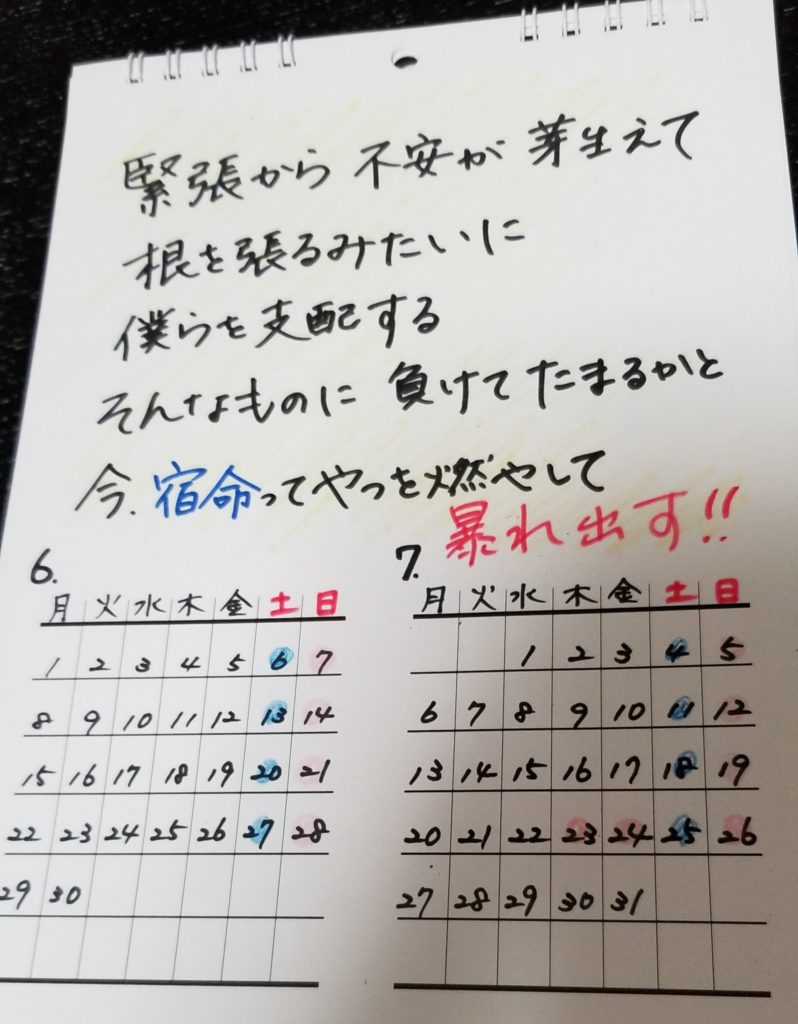 緊張から 不安が 芽生えて
根を張るみたいに
僕らを支配する
そんなものに 負けてたまるかと
今、宿命ってやつを燃やして
暴れ出す!!
6.
月 火 水 木 金 土 日
1 2 3 4 5 6 7
8 9 10 11 12 13 14
15 16 17 18 19 20 21
22 23 24 25 26 27 28
29 30
7.
月 火 水 木 金 土 日
1 2 3 4 5
6 7 8 9 10 11 12
13 14 15 16 17 18 19
20 21 22 23 24 25 26
27 28 29 30 31